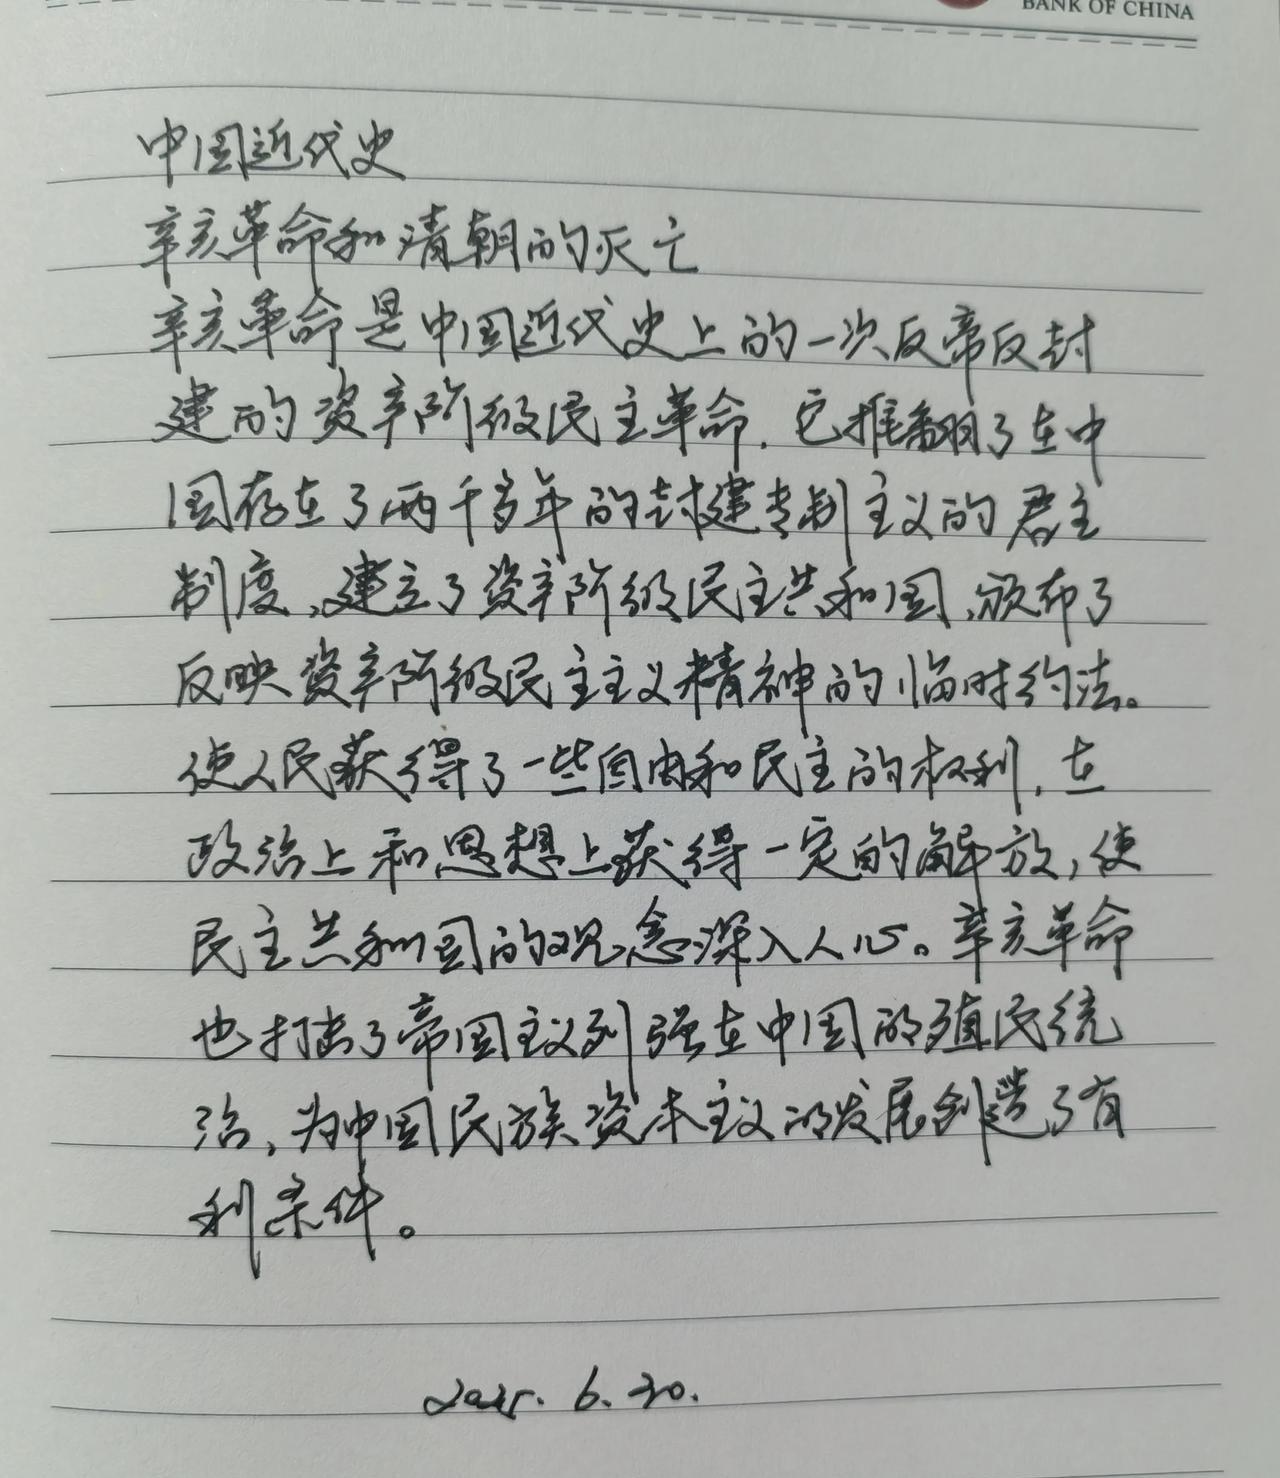 BANK OF CHINA
中国近代史
辛亥革命和清朝的灭亡
辛亥革命是中国近代史上的一次反帝反封
建的资产阶级民主革命.它推翻了在中
国存在了两千多年的封建专制主义的君主
制度,建立了资产阶级民主共和国,颁布了
反映资产阶级民主主义精神的临时约法。
使人民获得了一些自由和民主的权利.在
政治上和思想上获得一定的解放,使
民主共和国的观念深入人心。辛亥革命
也打击了帝国主义列强在中国的殖民统
治,为中国民族资本主义的发展创造了有
利条件。
2025.6.30.